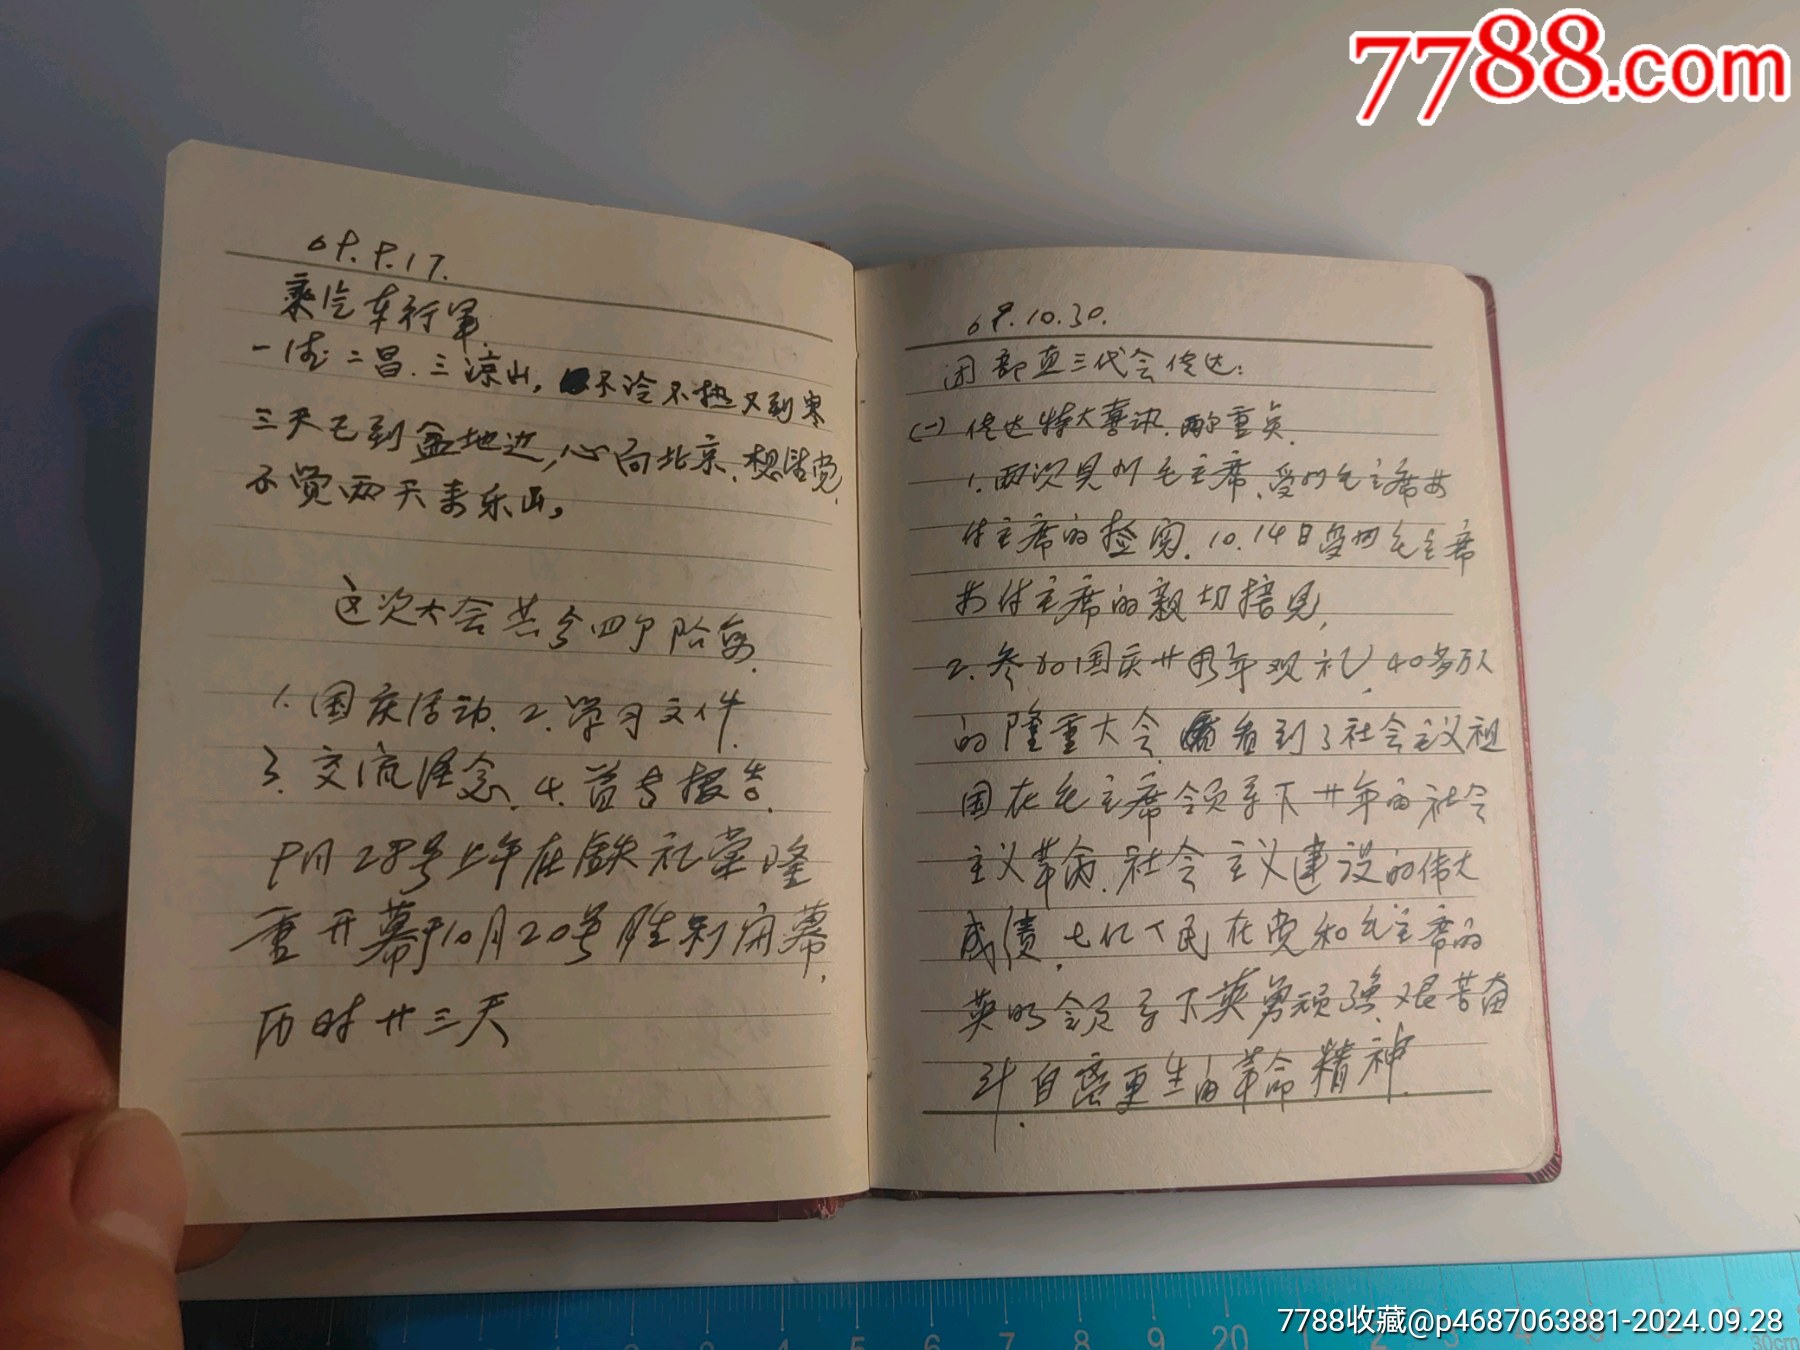 7788.com
69.9.17.
乘汽车行军
一德二昌.三凉山,不冷不热又到寒
三天已到盆地边,心向北京.想活党.
不觉两天来乐山,
这次大会共分四个阶段.
1.国庆活动.2.学习文件.
3.交流经念.4.首长报告.
9月28号上午在铁礼堂隆
重开幕于10月20号胜利闭幕,
历时廿三天
69.10.30.
团部直三代会传达:
(一)传达特大喜讯.
1.两次见到毛主席.受到毛主席林
付主席的检阅.10.14日受到毛主席
林付主席的亲切接见,
2.参加国庆廿周年观礼,40多万人
的隆重大会.看到了社会主义祖
国在毛主席领导下廿年的社会
主义革命.社会主义建设的伟大
成绩.七亿人民在党和毛主席的
英明领导下英勇顽强.艰苦奋
斗.自力更生的革命精神.
6 7 8 9 20 1 2 3 4 5
30cm
7788收藏@p4687063881-2024.09.28